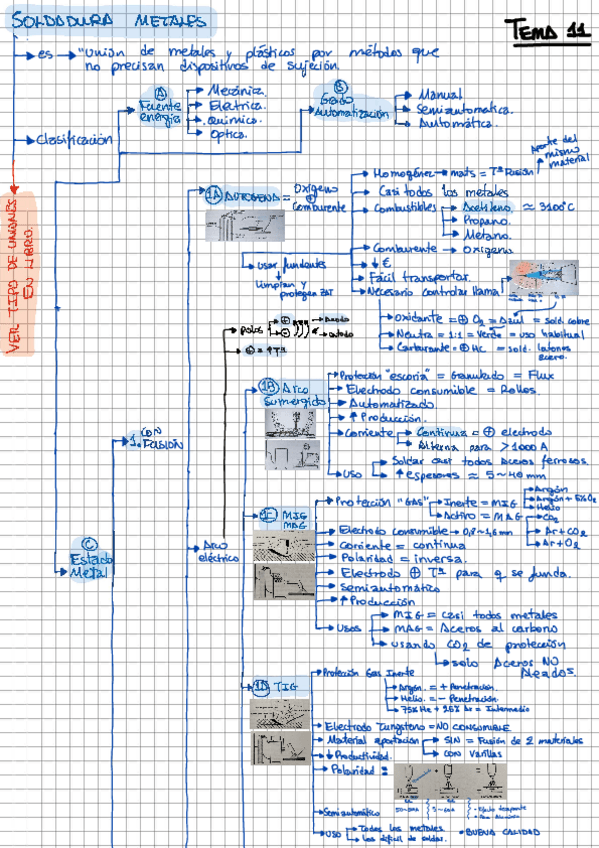 SOLDADURA METALES
TEMA 11
es → "Unión de metales y plásticos por métodos que
no precisan dispositivos de sujeción.
Clasificación
Ⓐ Fuente energía
Mecánica.
Eléctrica.
Química.
Óptica.
Ⓑ Grado Automatización
Manual
Semiautomática.
Automática.
VER TIPO DE UNIONES
EN LIBRO.
1. CON FUSIÓN
Ⓒ Estado Metal
1A AUTÓGENA = Oxígeno ⊕ Comburente
usar fundentes
Limpian y
protegen ZAT
Homogénea → mats = Tª Fusión
aporte del
mismo
material
Casi todos los metales
Combustibles
Acetileno. ≈ 3100°C
Propano.
Metano.
Comburente → Oxígeno
↓ €
Fácil transportar.
Necesario controlar llama
Oxidante = ⊕ O2 = Azul = sold. cobre
Neutra = 1:1 = Verde = uso habitual
Carburante = ⊕ HC = sold. latones
acero.
Arco
eléctrico
polos
⊕ → Ánodo
⊖ → Cátodo
⊕ = ↑ Tª
1B Arco
Sumergido
Protección "escoria" = Granulado = Flux
Electrodo consumible = Rollos.
Automatizado
↑ Producción.
Corriente
Continua = ⊕ electrodo
Alterna para > 1000 A
USO
Soldar casi todos aceros ferrosos.
↑ espesores ≈ 5~40 mm
MIG
MAG
Protección "GAS"
Inerte = MIG
Argón
Argón + 5% O2
Helio
Activo = MAG
CO2
Ar + CO2
Ar + O2
Electrodo consumible → 0,8~1,6 mm
Corriente = continua
Polaridad = inversa.
Electrodo ⊕ Tª para q se funda.
Semiautomático
↑ Producción
Usos
MIG = casi todos metales
MAG = Aceros al carbono
usando CO2 de protección
solo Aceros NO
Aleados.
1D TIG
Protección Gas Inerte
Argón. = + Penetración.
Helio. = - Penetración.
75% He + 25% Ar = Intermedio
Electrodo Tungsteno = NO CONSUMIBLE
Material aportación
SIN = Fusión de 2 materiales
CON varillas
↓ Productividad.
Polaridad =
Semiautomático
USO
Todos los metales.
Los difícil de soldar.
• BUENA CALIDAD